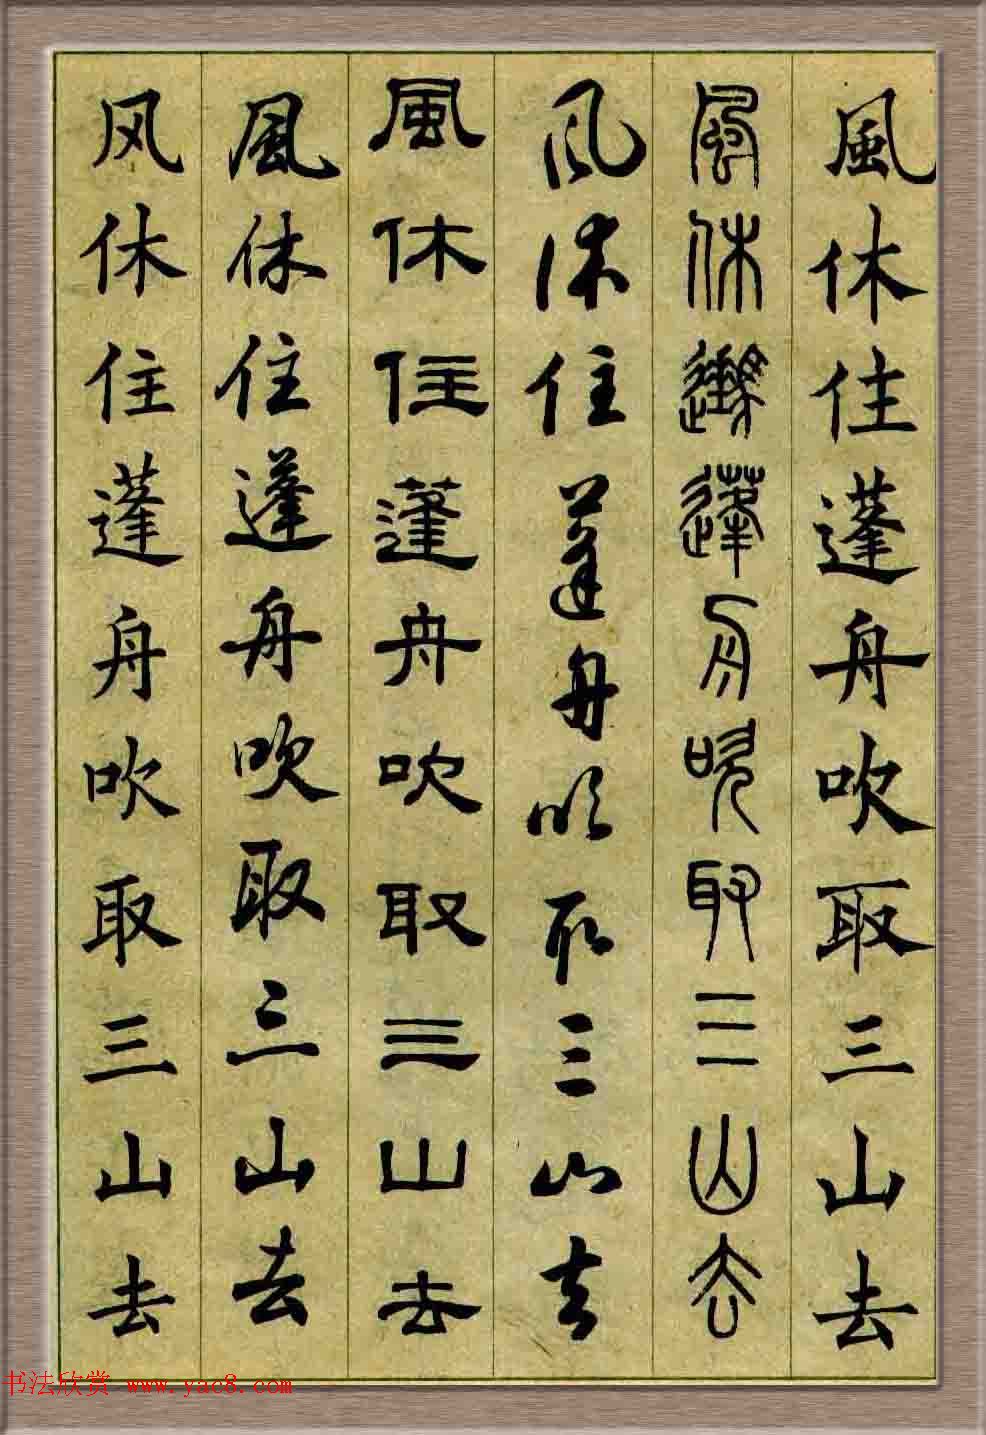 風休住蓬舟吹取三山去
風休住蓬舟吹取三山去
风休住蓬舟吹取三山去
風休住蓬舟吹取三山去
風休住蓬舟吹取三山去
风休住蓬舟吹取三山去
书法欣赏 www.yac8.com